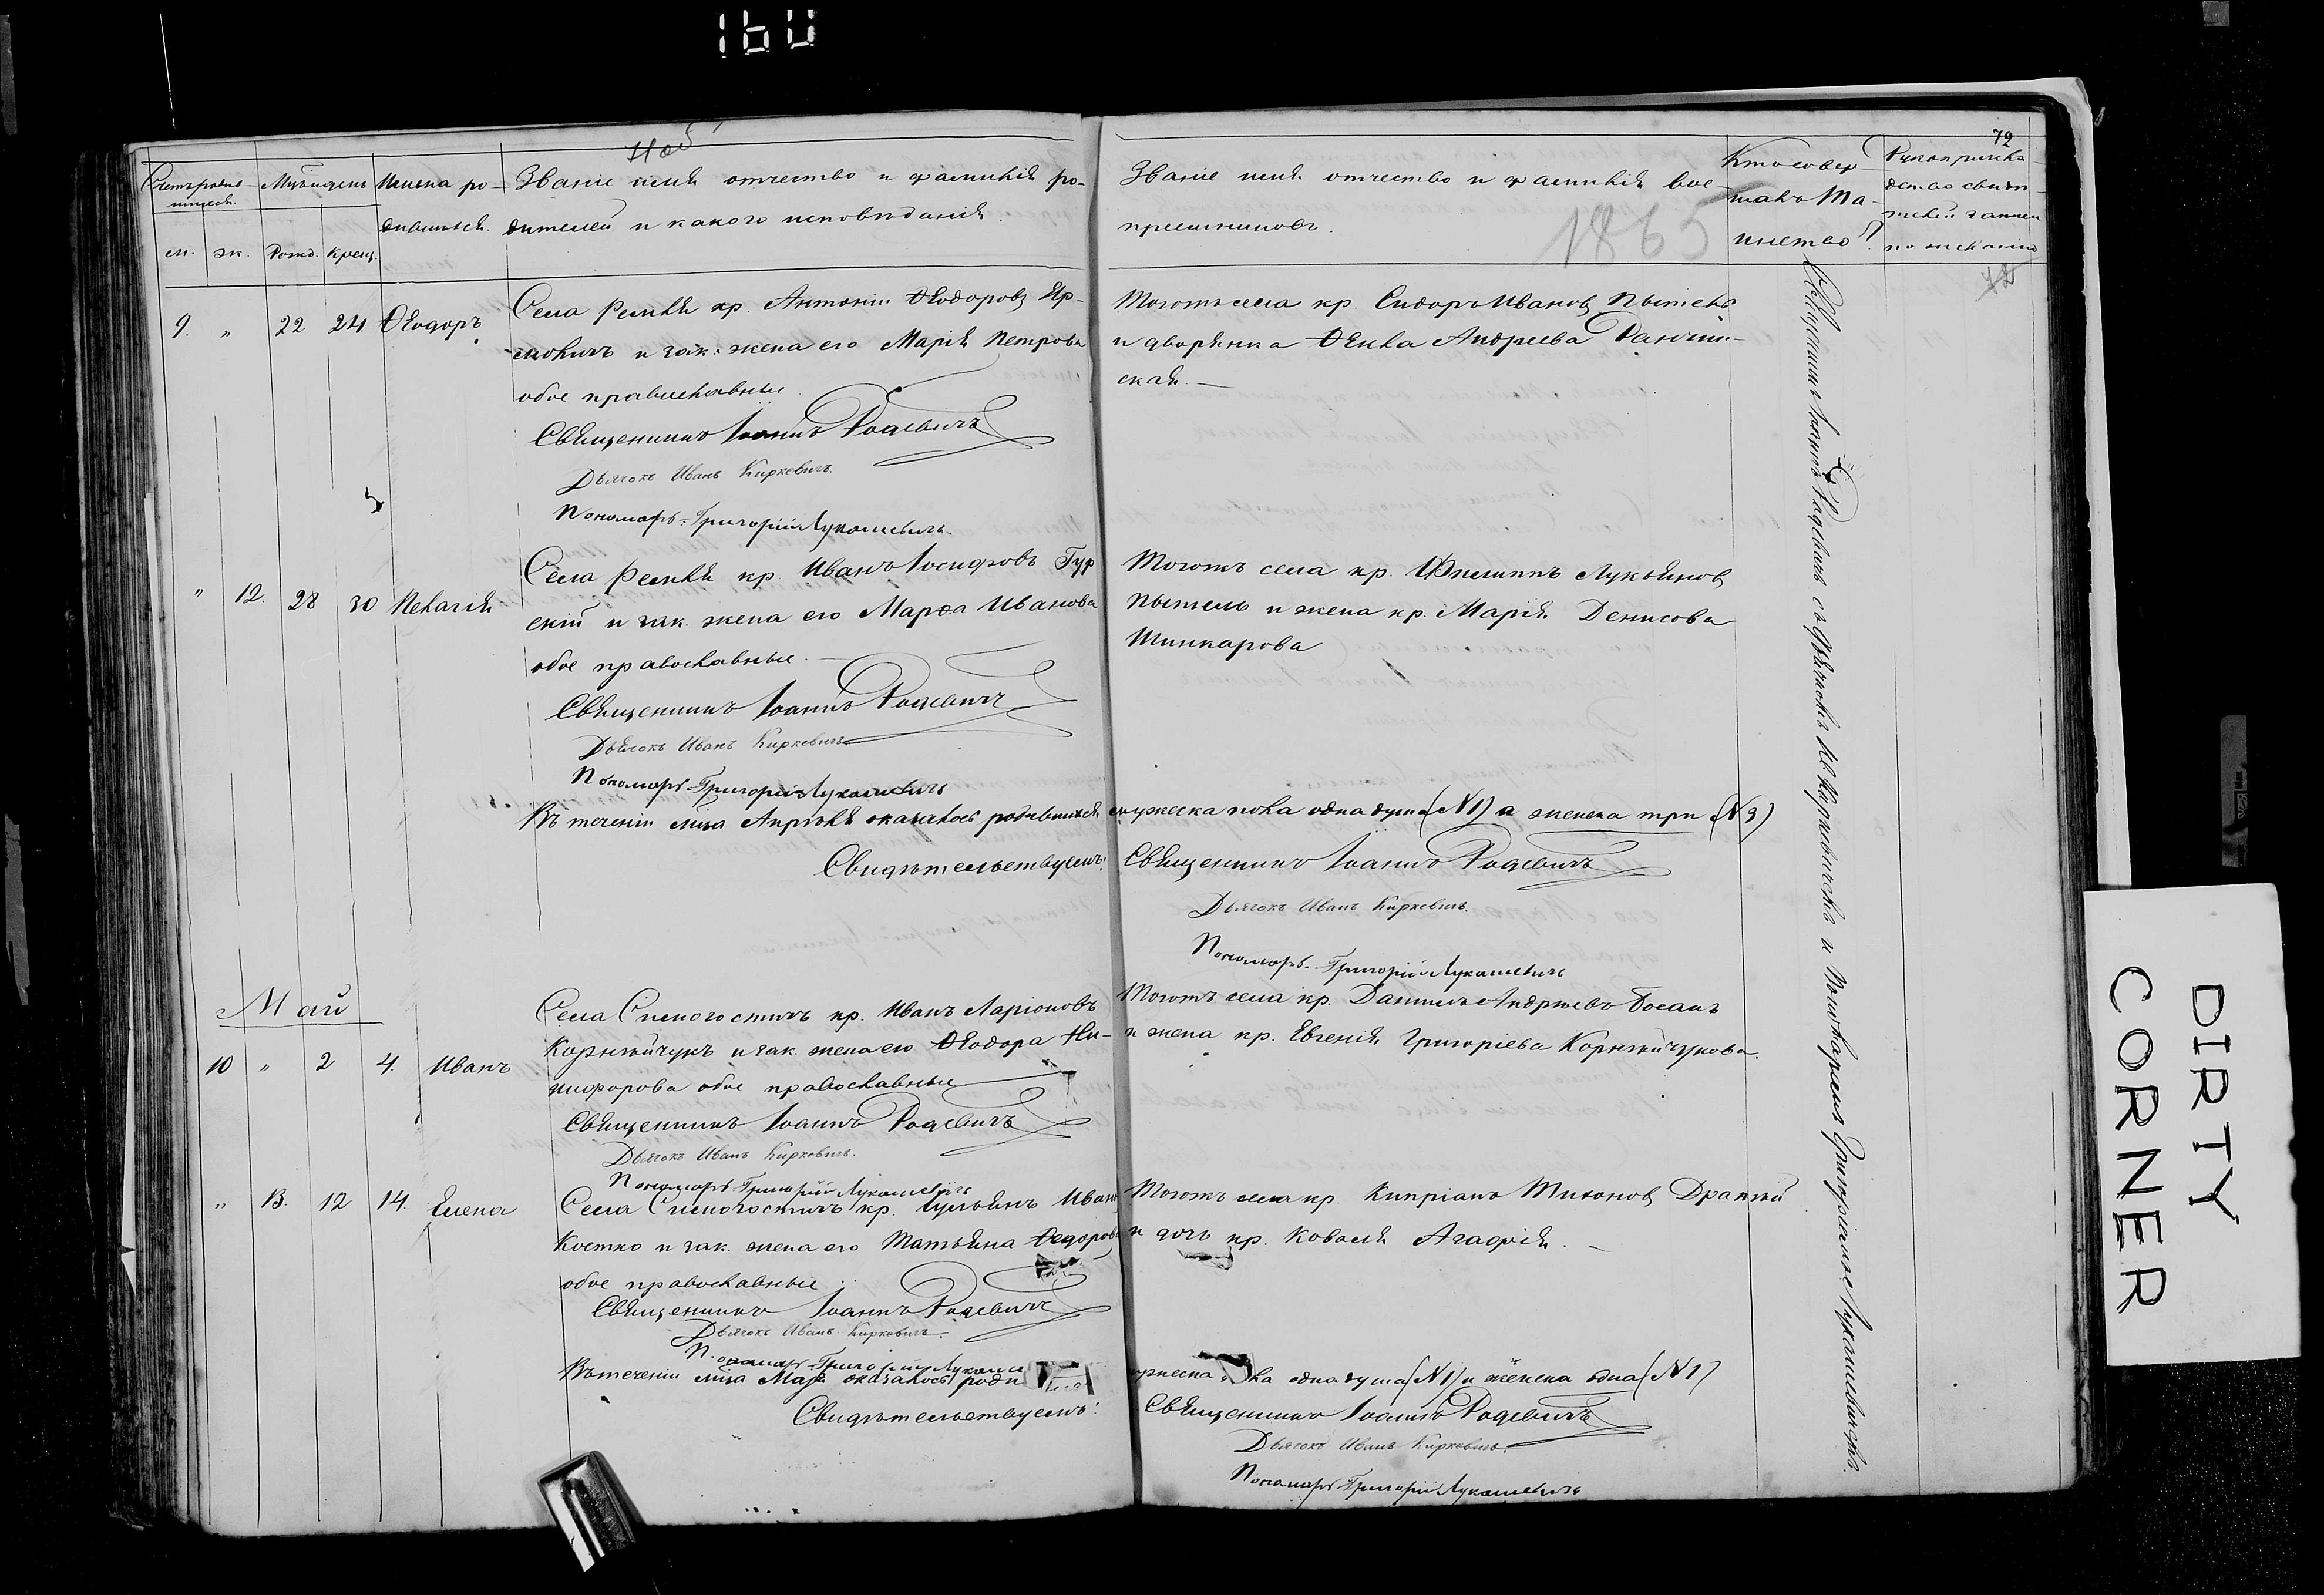 160
72
1865
Счетъ родив-
шихся.
м. ж.
Мѣсяцъ и день
Рожд. Крещ.
Имена ро-
дившихся.
Званіе имя отчество и фамилія ро-
дителей и какого исповѣданія.
Званіе имя отчество и фамилія вос-
пріемниковъ.
Кто совер
шалъ Та-
инство?
Рукоприкла-
дство свидѣ-
телей записи
по желанію
9. " 22 24 Ѳеодоръ
Села Ремля кр. Антоній Ѳеодоровъ Яр-
моличъ и зак. жена его Марія Петрова
обое православные
Священникъ Іоаннъ Родевичъ
Дьячокъ Иванъ Киркевичъ.
Пономарь Григорій Лукашевичъ.
Тогожъ села кр. Сидоръ Ивановъ Пытель
и дворянка Ѳекла Андреева
ская.
" 12. 28 30 Пелагія
Села Ремля кр. Иванъ Іосифовъ Гур
скій и зак. жена его Марѳа Иванова
обое православные.
Священникъ Іоаннъ Родевичъ
Дьячокъ Иванъ Киркевичъ
Пономарь Григорій Лукашевичъ
Тогожъ села кр. Филиппъ Лукьяновъ
Пытель и жена кр. Марія Денисова
Шинкарова
Въ теченіи м҃ца Апрѣля оказалось родившихся мужеска пола одна душа (№ 1) а женска три (№ 3)
Свидѣтельствуемъ: Священникъ Іоаннъ Родевичъ
Дьячокъ Иванъ Киркевичъ.
Пономарь Григорій Лукашевичъ
Май
10 " 2 4. Иванъ
Села Симоностичъ кр. Иванъ Ларіоновъ
Корнѣйчукъ и зак. жена его Ѳеодора Ни-
кифорова обое православные
Священникъ Іоаннъ Родевичъ
Дьячокъ Иванъ Киркевичъ.
Пономарь Григорій Лукашевичъ
Тогожъ села кр. Даніилъ Андреевъ Босакъ
и жена кр. Евгенія Григоріева Корнѣйчукова.
" 13. 12 14. Елена
Села Симоностичъ кр. Іульянъ Иван
Костко и зак. жена его Татьяна Ѳедорова
обое православные
Священникъ Іоаннъ Родевичъ
Дьячокъ Иванъ Киркевичъ.
Пономарь Григорій Лукаше
Тогожъ села кр. Кипріанъ Тихоновъ
и дочь кр. Коваля Агафія.
Въ теченіи м҃ца Мая оказалось роди ужеска ла одна душа (№ 1) и женска одна (№ 1)
Свидѣтельствуемъ: Священникъ Іоаннъ Родевичъ
Дьячокъ Иванъ Киркевичъ.
Пономарь Григорій Лукашевичъ
Священникъ Іоаннъ Родевичъ съ дьячкомъ Ив. Киркевичемъ и Пономаремъ Григоріемъ Лукашевичемъ.
DIRTY
CORNER